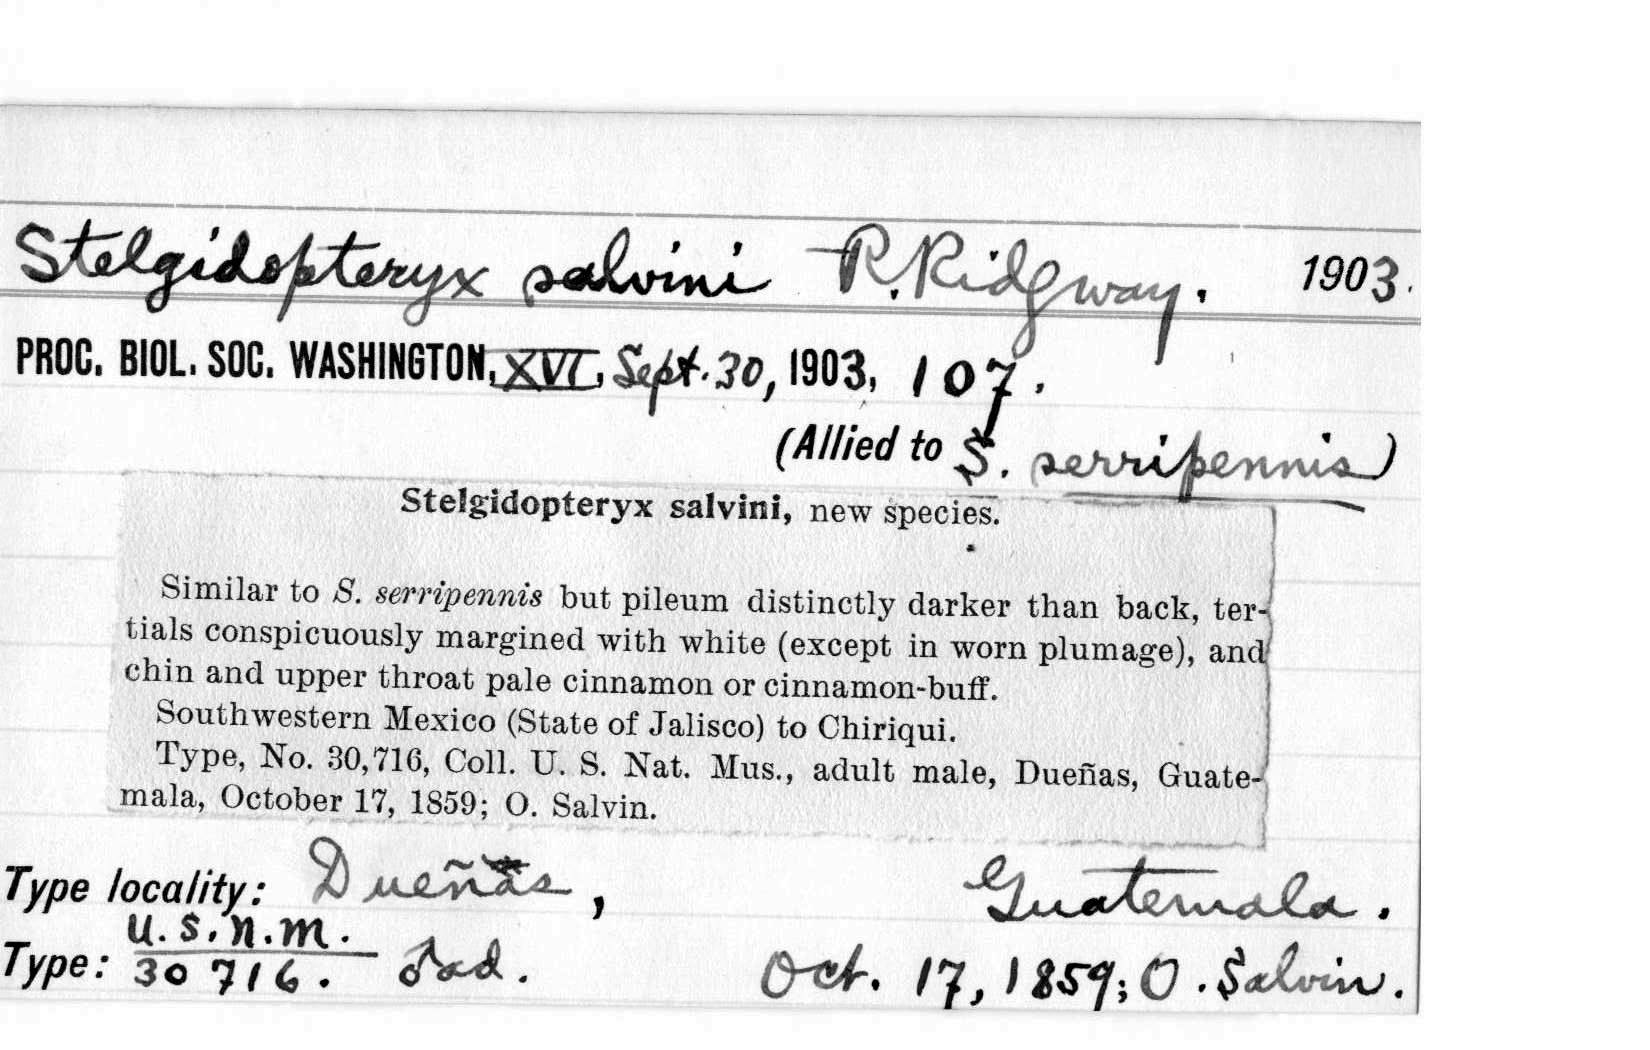 Stelgidopteryx salvini R. Ridgway. 1903.
PROC. BIOL. SOC. WASHINGTON, XVI, Sept. 30, 1903, 107.
(Allied to S. serripennis)
Stelgidopteryx salvini, new species.
Similar to S. serripennis but pileum distinctly darker than back, ter-
tials conspicuously margined with white (except in worn plumage), and
chin and upper throat pale cinnamon or cinnamon-buff.
Southwestern Mexico (State of Jalisco) to Chiriqui.
Type, No. 30,716, Coll. U. S. Nat. Mus., adult male, Dueñas, Guate-
mala, October 17, 1859; O. Salvin.
Type locality: Dueñas, Guatemala.
U.S.N.M.
Type: 30716. ♂ad. Oct. 17, 1859; O. Salvin.